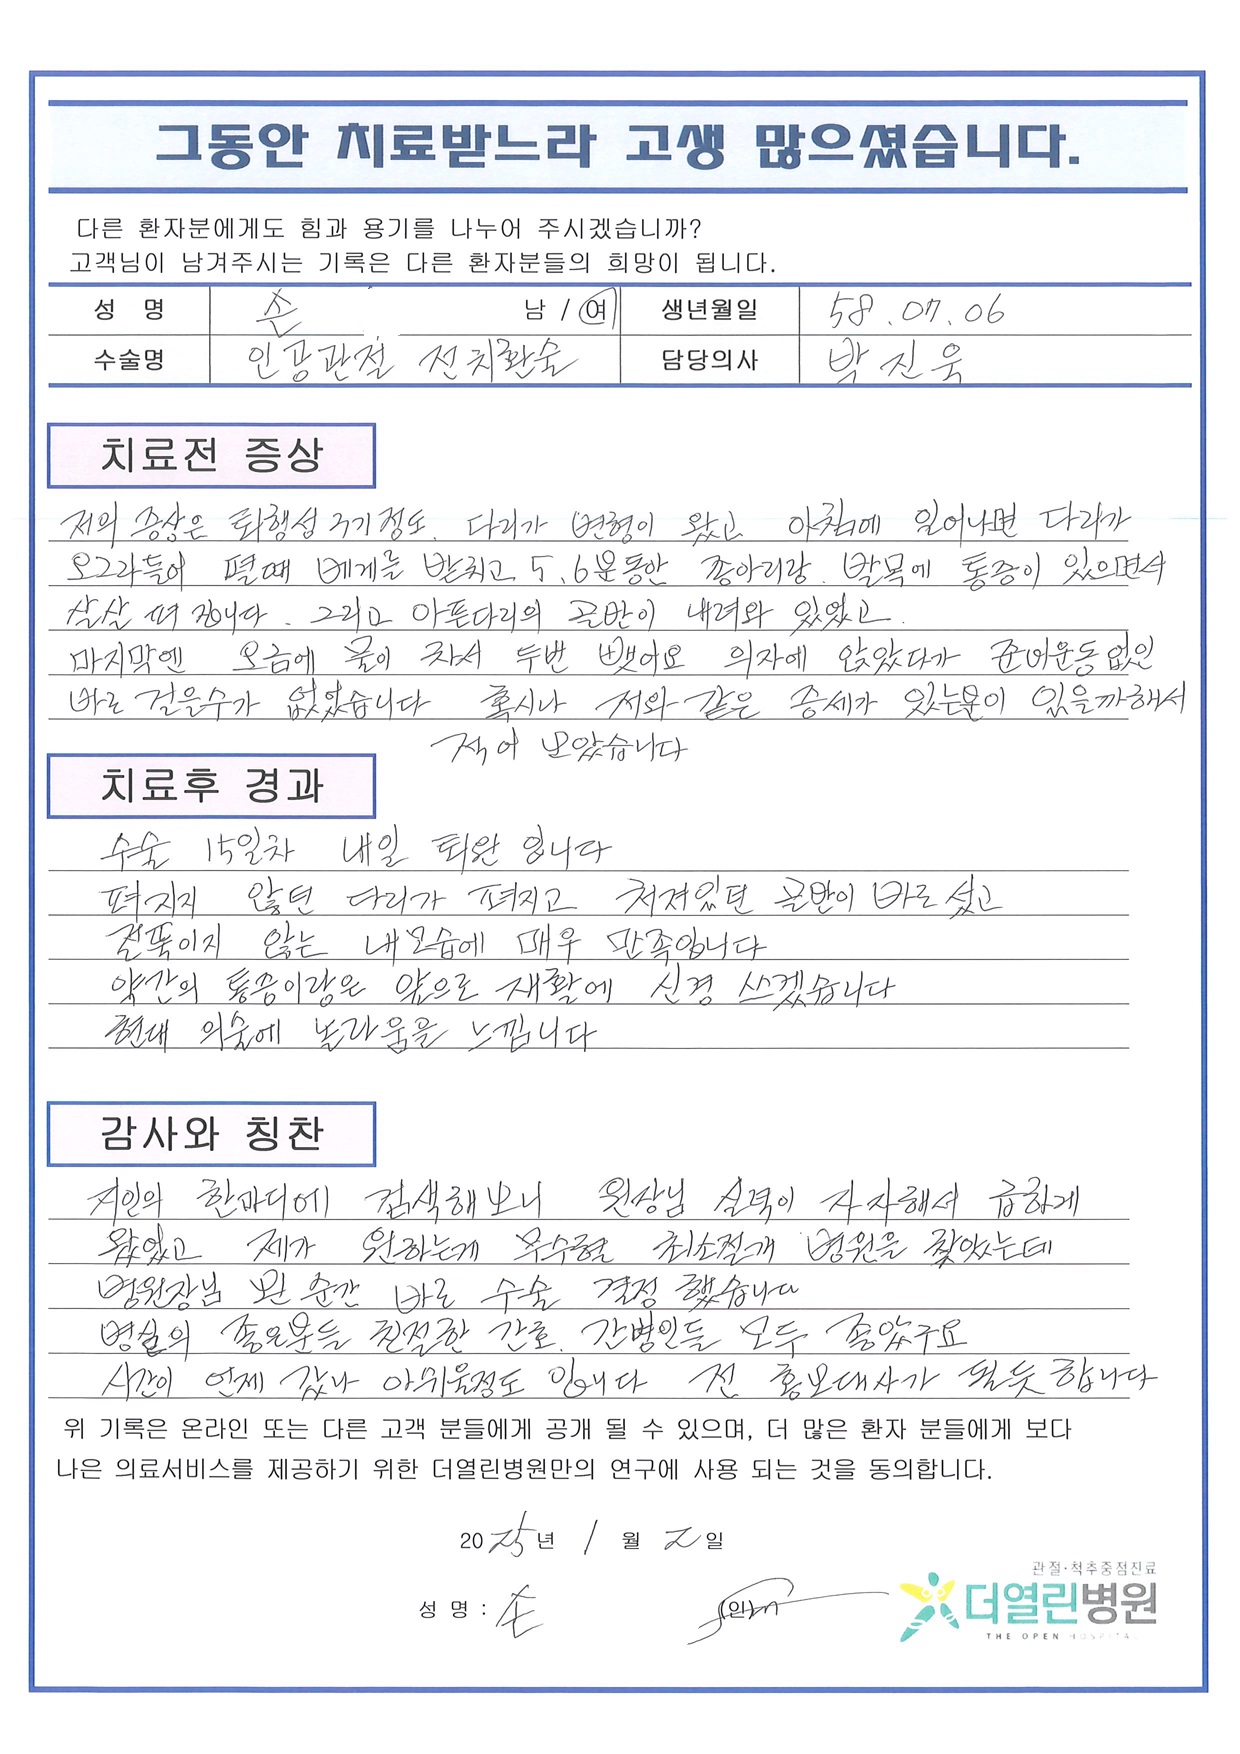 그동안 치료받느라 고생 많으셨습니다.
다른 환자분에게도 힘과 용기를 나누어 주시겠습니까?
고객님이 남겨주시는 기록은 다른 환자분들의 희망이 됩니다.
성 명 손 남 / 여 생년월일 58.07.06
수술명 인공관절 전치환술 담당의사 박진욱
치료전 증상
저의 증상은 퇴행성 거기정도. 다리가 변형이 왔고 아침에 일어나면 다리가
오그라들어 펼때 베게를 받치고 5.6분동안 종아리랑. 발목에 통증이 있으면서
살살 펴집니다. 그리고 아픈다리의 골반이 내려와 있었고.
마지막엔 오금에 물이 차서 두번 뺏어요 의자에 앉았다가 준비운동없인
바로 걸을수가 없었습니다 혹시나 저와 같은 증세가 있는분이 있을까해서
적어 보았습니다
치료후 경과
수술 15일차 내일 퇴원 입니다
펴지지 않던 다리가 펴지고 쳐져있던 골반이 바로섰고
걸뚝이지 않는 내모습에 매우 만족입니다
약간의 통증이랑은 앞으로 재활에 신경 쓰겠습니다
현대 의술에 놀라움을 느낍니다
감사와 칭찬
지인의 한마디에 검색해보니 원장님 실력이 자자해서 급하게
왔었고 제가 원하는게 무수혈 최소절개 병원을 찾았는데
병원장님 뵌 순간 바로 수술 결정 했습니다
병실의 좋은분들 친절한 간호. 간병인들 모두 좋았구요
시간이 언제 갔나 아쉬울정도 입니다 전 홍보대사가 될듯 합니다
위 기록은 온라인 또는 다른 고객 분들에게 공개 될 수 있으며, 더 많은 환자 분들에게 보다
나은 의료서비스를 제공하기 위한 더열린병원만의 연구에 사용 되는 것을 동의합니다.
2025년 1월 2일
성 명 : 손 (인)
관절·척추중점진료
더열린병원
THE OPEN HOSPITAL